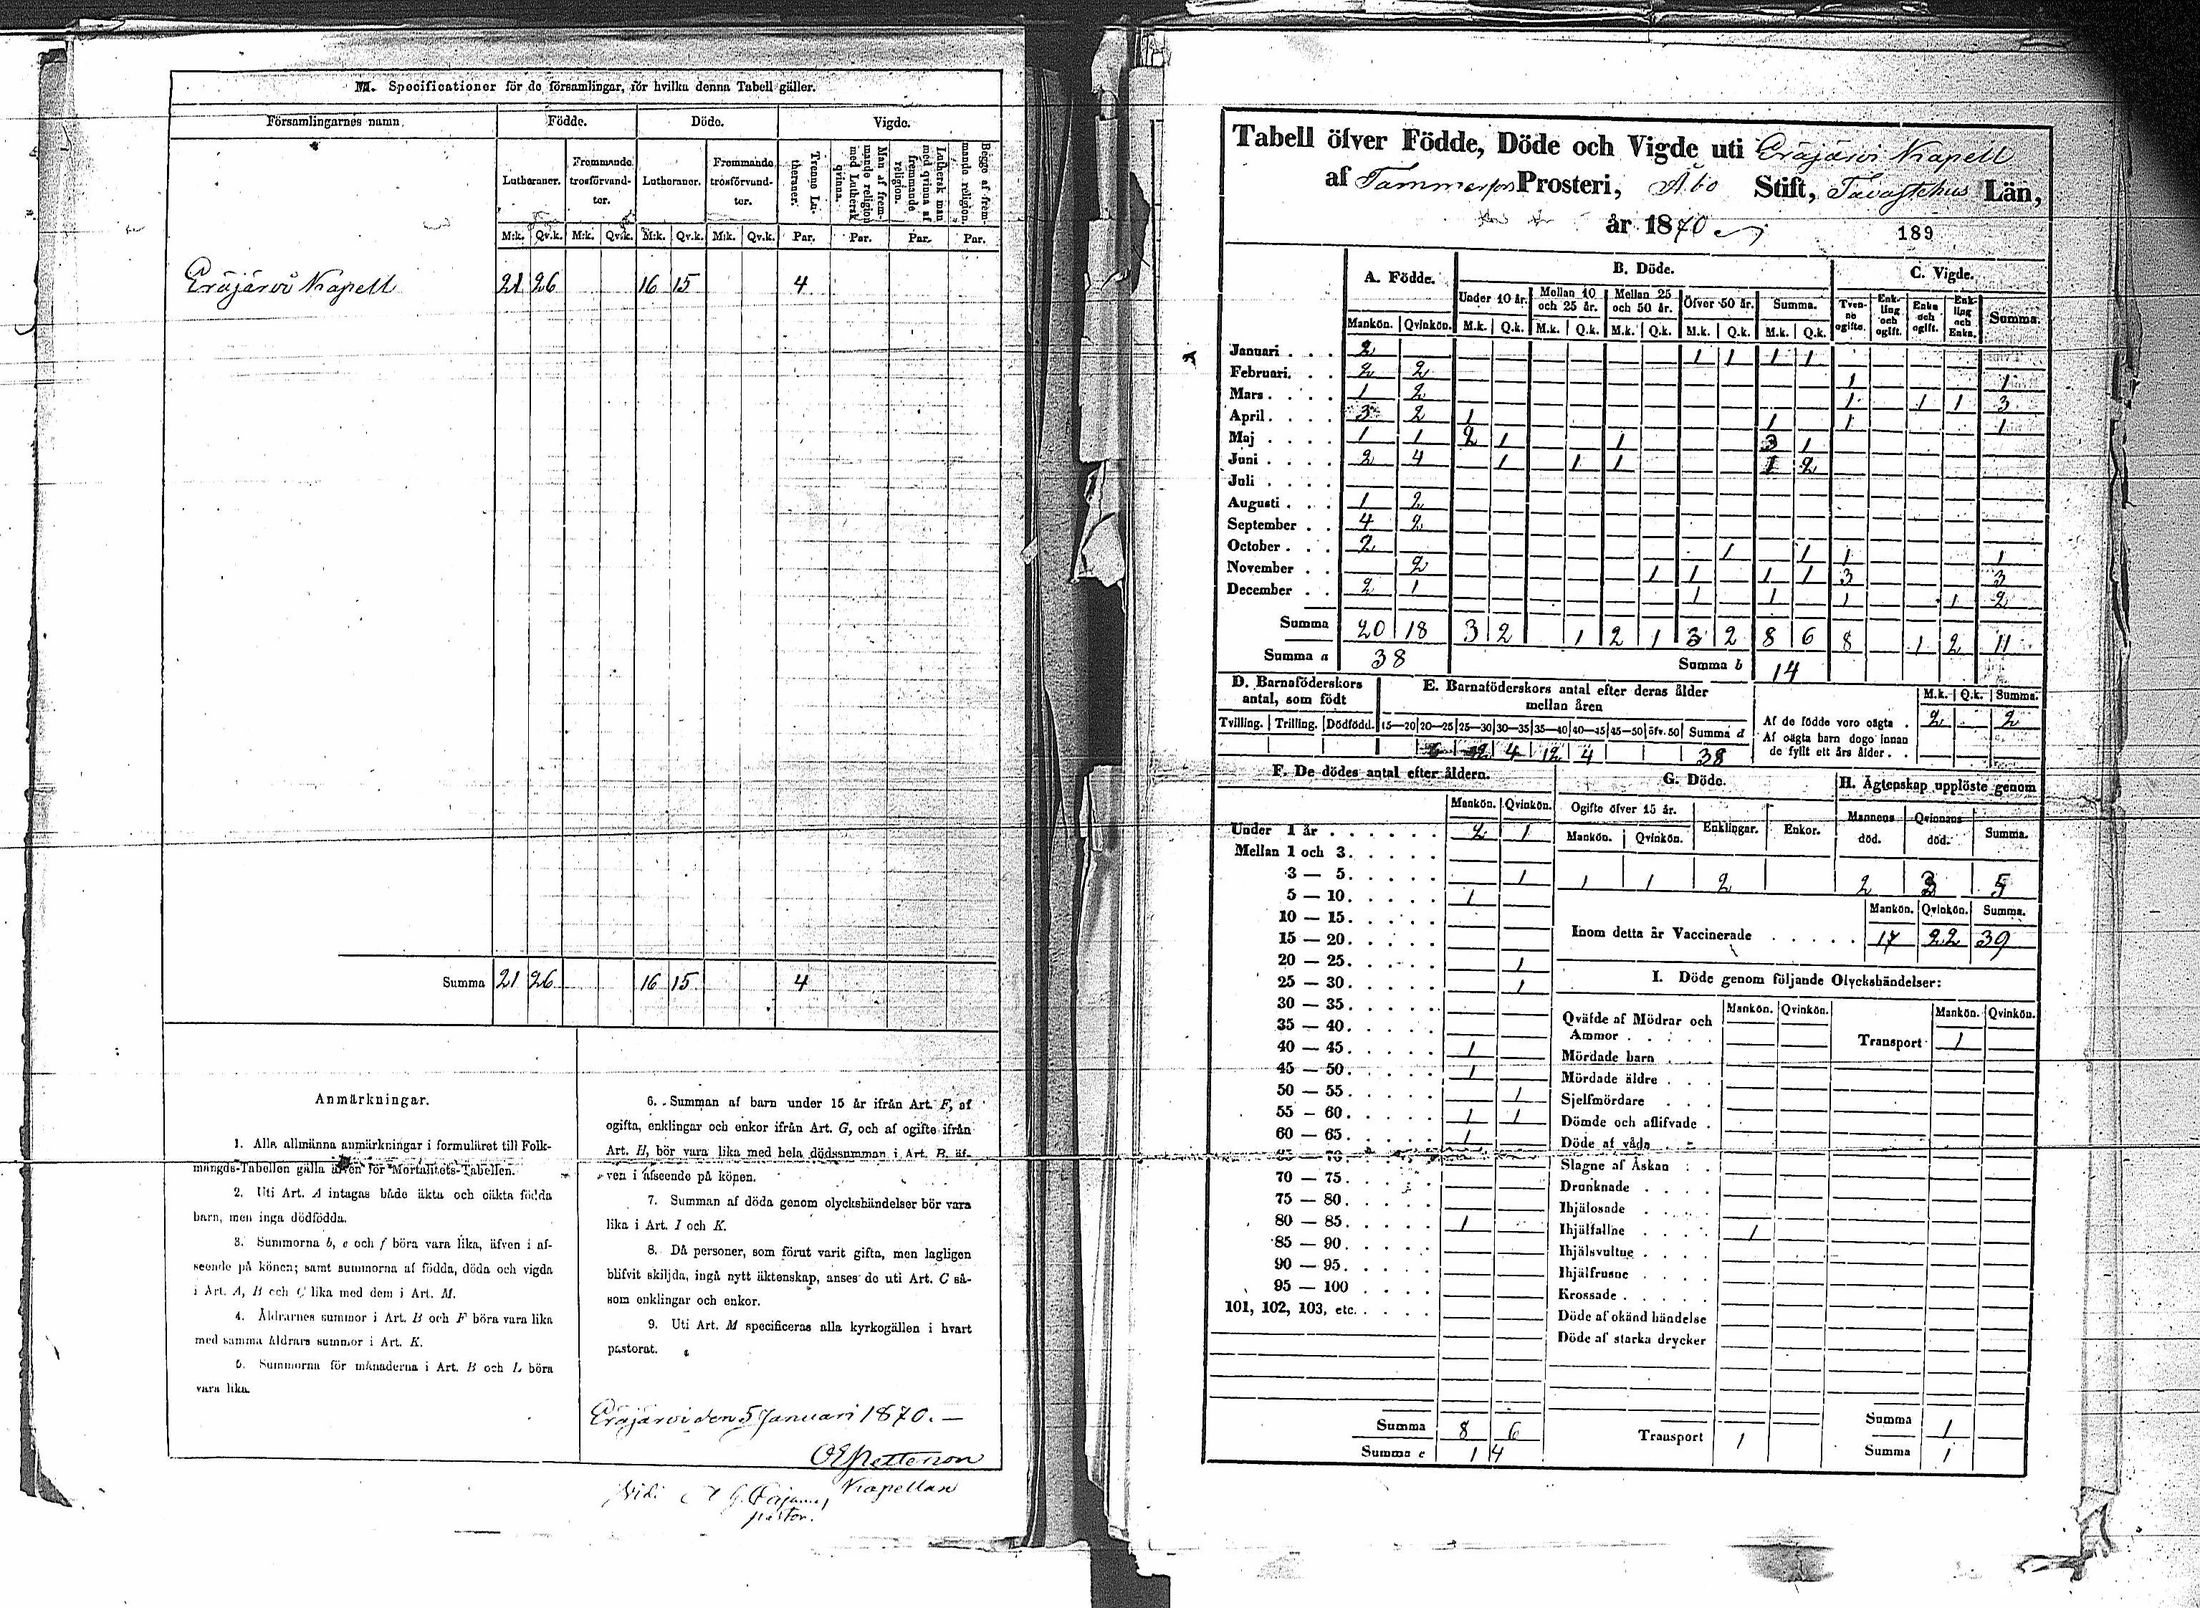 M. Specificationer för de församlingar, för hvilka denna Tabell gäller.
Församlingarnes namn. Födde. Döde. Vigde.
Lutheraner. Frommande trosförvandter. Lutheraner. Frommande trosförvandter. Tvenne Lutheraner. Man af fremmande religion med Luthersk qvinna. Luthersk man med qvinna af fremmande religion. Begge af fremmande religion.
M:k. Qv.k. M:k. Qv.k. M:k. Qv.k. M:k. Qv.k. Par. Par. Par. Par.
Eräjärvi Kapell 21 26 16 15 4
Summa 21 26 16 15 4
Anmärkningar.
1. Alla allmänna anmärkningar i formuläret till Folk-
mängds-Tabellen gälla äfven för Mortalitets-Tabellen.
2. Uti Art. A intagas både äkta och oäkta födda
barn, men inga dödfödda.
3. Summorna b, e och f böra vara lika, äfven i af-
seende på könen; samt summorna af födda, döda och vigda
i Art. A, B och C lika med dem i Art. M.
4. Åldrarnes summor i Art. B och F böra vara lika
med samma åldrars summor i Art. K.
5. Summorna för månaderna i Art. B och L böra
vara lika.
6. Summan af barn under 15 år ifrån Art. F, af
ogifta, enklingar och enkor ifrån Art. G, och af ogifte ifrån
Art. H, bör vara lika med hela dödssumman i Art. B, äf-
ven i afseende på könen.
7. Summan af döda genom olyckshändelser bör vara
lika i Art. I och K.
8. Då personer, som förut varit gifta, men lagligen
blifvit skiljda, ingå nytt äktenskap, anses de uti Art. C så-
som enklingar och enkor.
9. Uti Art. M specificeras alla kyrkogällen i hvart
pastorat.
Eräjärvi den 5 Januari 1870.
Kapellan
Vidi
pastor.
Tabell öfver Födde, Döde och Vigde uti Eräjärvi Kapell
af Tammerfors Prosteri, Åbo Stift, Tavastehus Län,
år 1870 189
A. Födde. B. Döde. C. Vigde.
Under 10 år. Mellan 10 och 25 år. Mellan 25 och 50 år. Öfver 50 år. Summa. Tvenne ogifte. Enkling och ogift. Enka och ogift. Enkling och Enka. Summa.
Mankön. Qvinkön. M.k. Q.k. M.k. Q.k. M.k. Q.k. M.k. Q.k. M.k. Q.k.
Januari . . . 2 1 1 1 1
Februari. . . 2 2 1 1
Mars . . . . 1 2 1 1 1 3
April . . . . 3 2 1 1 1 1
Maj . . . . 1 1 2 1 1 3 1
Juni . . . . 2 4 1 1 1 1 2
Juli . . . .
Augusti . . . 1 2
September . . 4 2
October . . . 2 1 1 1 1
November . . 2 1 1 1 1 3 3
December . . 2 1 1 1 1 1 2
Summa 20 18 3 2 1 2 1 3 2 8 6 8 1 2 11
Summa a 38 Summa b 14
D. Barnaföderskors antal, som födt
Tvilling. Trilling. Dödfödd.
E. Barnaföderskors antal efter deras ålder mellan åren
15—20 20—25 25—30 30—35 35—40 40—45 45—50 öfv. 50 Summa d
6 12 4 12 4 38
M.k. Q.k. Summa.
Af de födde voro oägta . 2 2
Af oägta barn dogo innan
de fyllt ett års ålder . .
F. De dödes antal efter åldern.
Mankön. Qvinkön.
Under 1 år . . . . . . 2 1
Mellan 1 och 3. . . . .
3 — 5. . . . . 1
5 — 10. . . . . 1
10 — 15. . . . .
15 — 20. . . . .
20 — 25. . . . . 1
25 — 30. . . . . 1
30 — 35. . . . .
35 — 40. . . . .
40 — 45. . . . . 1
45 — 50. . . . . 1
50 — 55. . . . . 1
55 — 60. . . . . 1 1
60 — 65. . . . . 1
70 — 75. . . . .
75 — 80. . . . .
80 — 85. . . . . 1
85 — 90. . . . .
90 — 95. . . . .
95 — 100 . . . .
101, 102, 103, etc. . . . .
Summa 8 6
Summa e 14
G. Döde.
Ogifte öfver 15 år. Enklingar. Enkor.
Mankön. Qvinkön.
1 1 2
H. Ägtenskap upplöste genom
Mannens död. Qvinnans död. Summa.
2 3 5
Mankön. Qvinkön. Summa.
Inom detta år Vaccinerade . . . . . 17 22 39
I. Döde genom följande Olyckshändelser:
Mankön. Qvinkön. Mankön. Qvinkön.
Qväfde af Mödrar och
Ammor . . . . . Transport 1
Mördade barn . . .
Mördade äldre . . .
Sjelfmördare . . .
Dömde och aflifvade .
Döde af våda . .
Slagne af Åskan . .
Drunknade . . . .
Ihjälosade . . . .
Ihjälfallne . . . . 1
Ihjälsvultne . . . .
Ihjälfrusne . . . .
Krossade . . . . .
Döde af okänd händelse
Döde af starka drycker
Transport 1 Summa 1
Summa 1